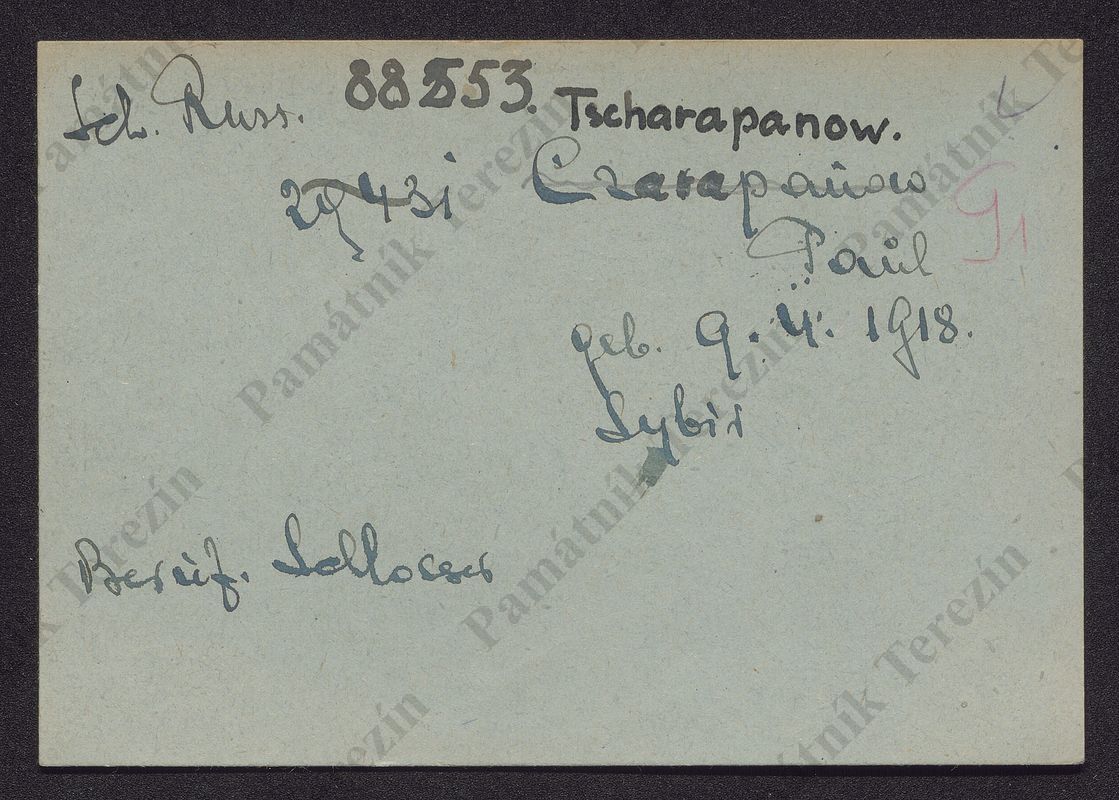 Sch. Russ. 88553. Tscharapanow.
29431 Czarapanow
Paul
geb. 9. 4. 1918.
Sybir
Beruf. Schlosser
Památník Terezín